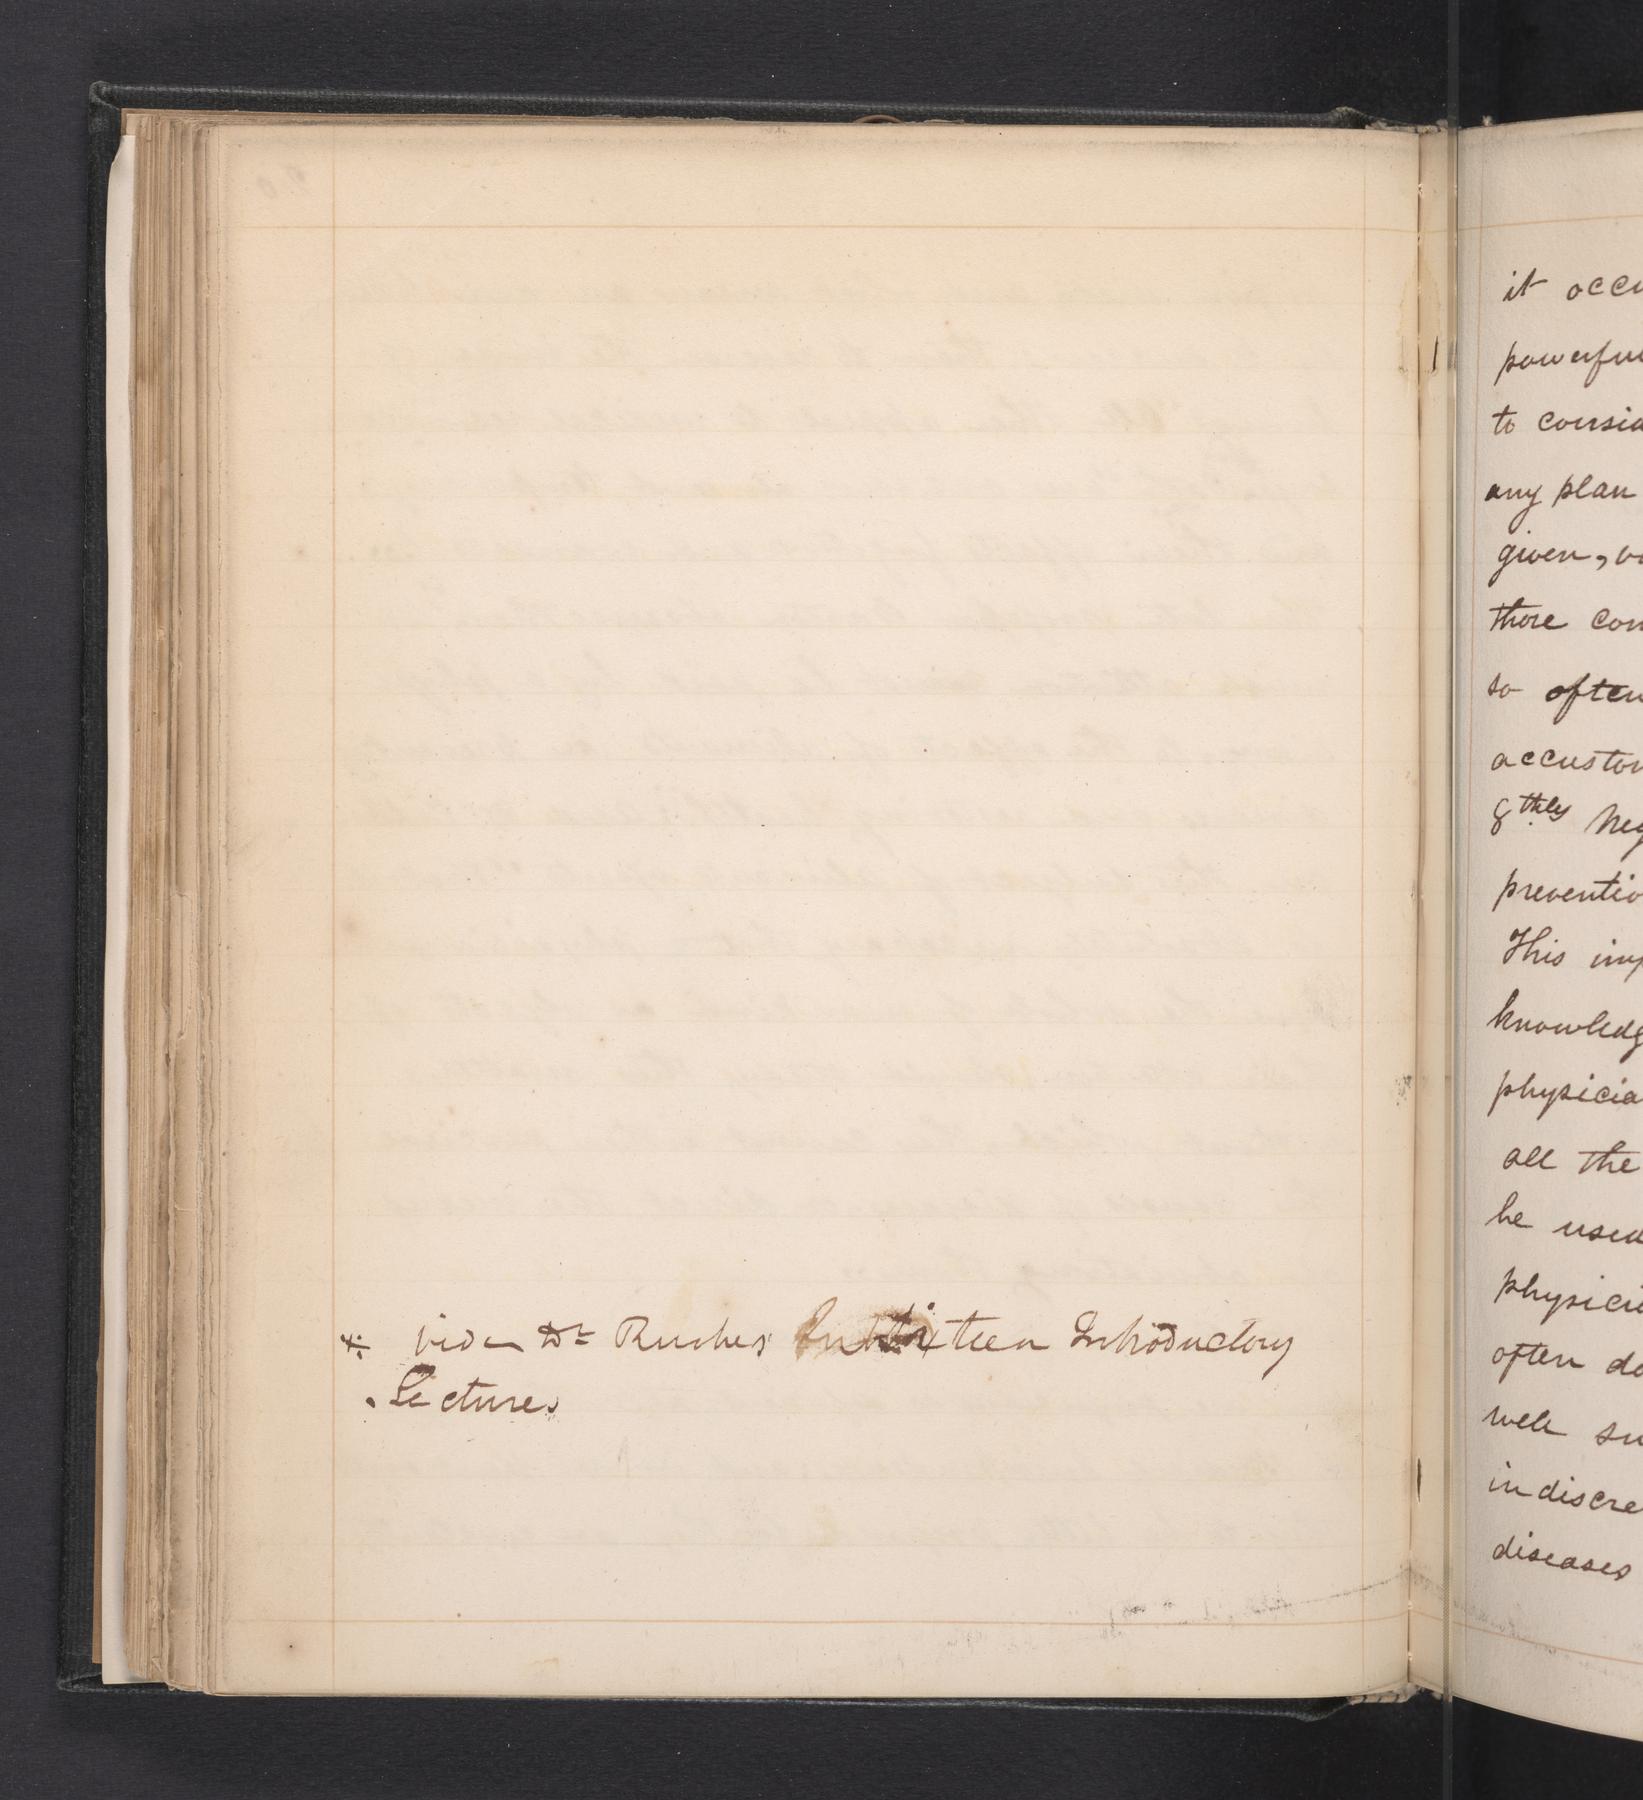 * vide Dr Rushes Sixteen Introductory
Lectures
it occu
powerfu
to consid
any plan
given, w
those con
so often
accustom
8thly Neg
preventio
This imp
knowledg
physicia
all the
be used
physicia
often de
well su
indiscre
diseases